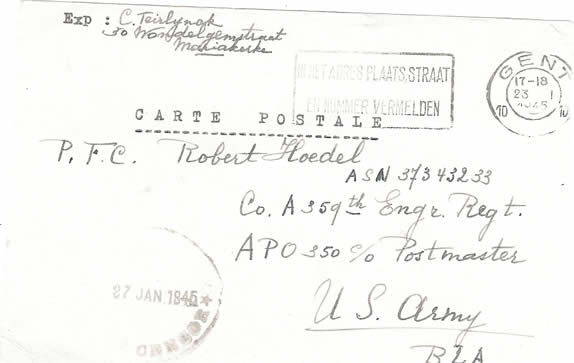 Exp : C. Teirlynck
30 Wondelgemstraat
Mariakerke
IN HET ADRES PLAATS, STRAAT
EN NUMMER VERMELDEN
GENT
17-18
23 I
1945
10 10
CARTE POSTALE
P.F.C. Robert Hoedel
ASN 37343233
Co. A 359th Engr. Regt.
APO 350 c/o Postmaster
U S. Army
BLA
27 JAN. 1945